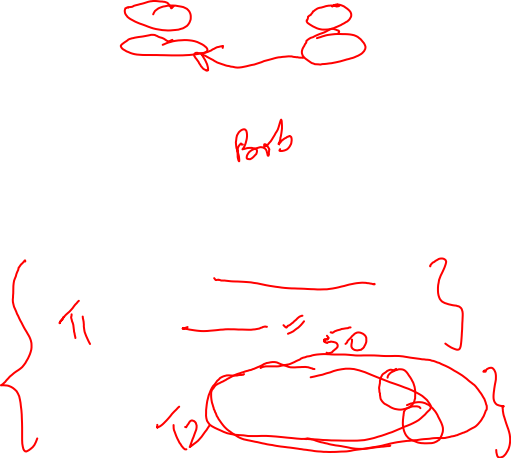 Bob
T1
= 50
T2